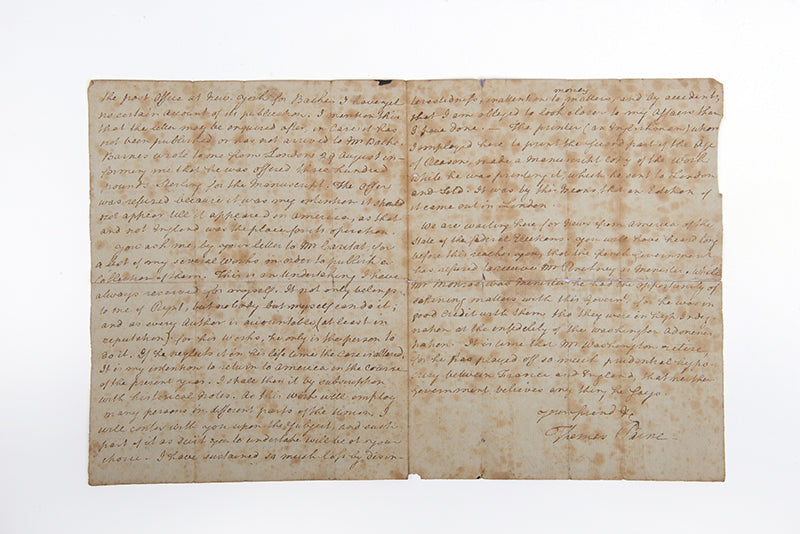 the post Office at New York for Bache. I have yet
no certain account of its publication. I mention this
that the letter may be enquired after, in Case it has
not been published or has not arrived to Mr Bache.
Barnes wrote to me from London 29 August in-
forming me that he was offered three hundred
pounds sterling for the Manuscript. The offer
was refused because it was my intention it should
not appear till it appeared in America, as that
and not England was the place for its operation
you ask me by your letter to Mr Caritat, for
a list of my several works in order to publish a
Collection of them. This is an Undertaking I have
always reserved for myself. It not only belongs
to me of Right, but nobody but myself can do it;
and as every Author is accountable (at least in
reputation) for his Works, he only is the person to
do it. If he neglects it in his life time the Case is altered.
It is my intention to return to America in the Course
of the present year. I shall then it by subscription
with historical Notes. As this work will employ
many persons in different parts of the Union, I
will confer with you upon the Subject, and such
part of it as will suit you to undertake will be at your
choice. I have sustained so much loss by disin-
money
terestedness, inattention to matters, and by accidents,
that I am obliged to look closer to my Affairs than
I have done. The printer (an Englishman) whom
I employed here to print the second part of the Age
of Reason, made a Manuscript copy of the Work
while he was printing it, which he sent to London
and sold. It was by this Means that an Edition of
it came out in London.
We are waiting here for News from America of the
State of the federal Elections. you will have heard long
before this reaches you, that the french Government
has refused to receive Mr Pinckney as Minister. While
Mr Monroe was Minister he had the opportunity of
softening matters with this Governmt, for he was in
good Credit with them tho they were in high Indig-
nation at the infidelity of the Washington Administ-
ration. It is time that Mr Washington retire,
for he has played off so much prudential hypo-
crisy between France and England, that neither
Government believes any thing he says
your friend &c
Thomas Paine